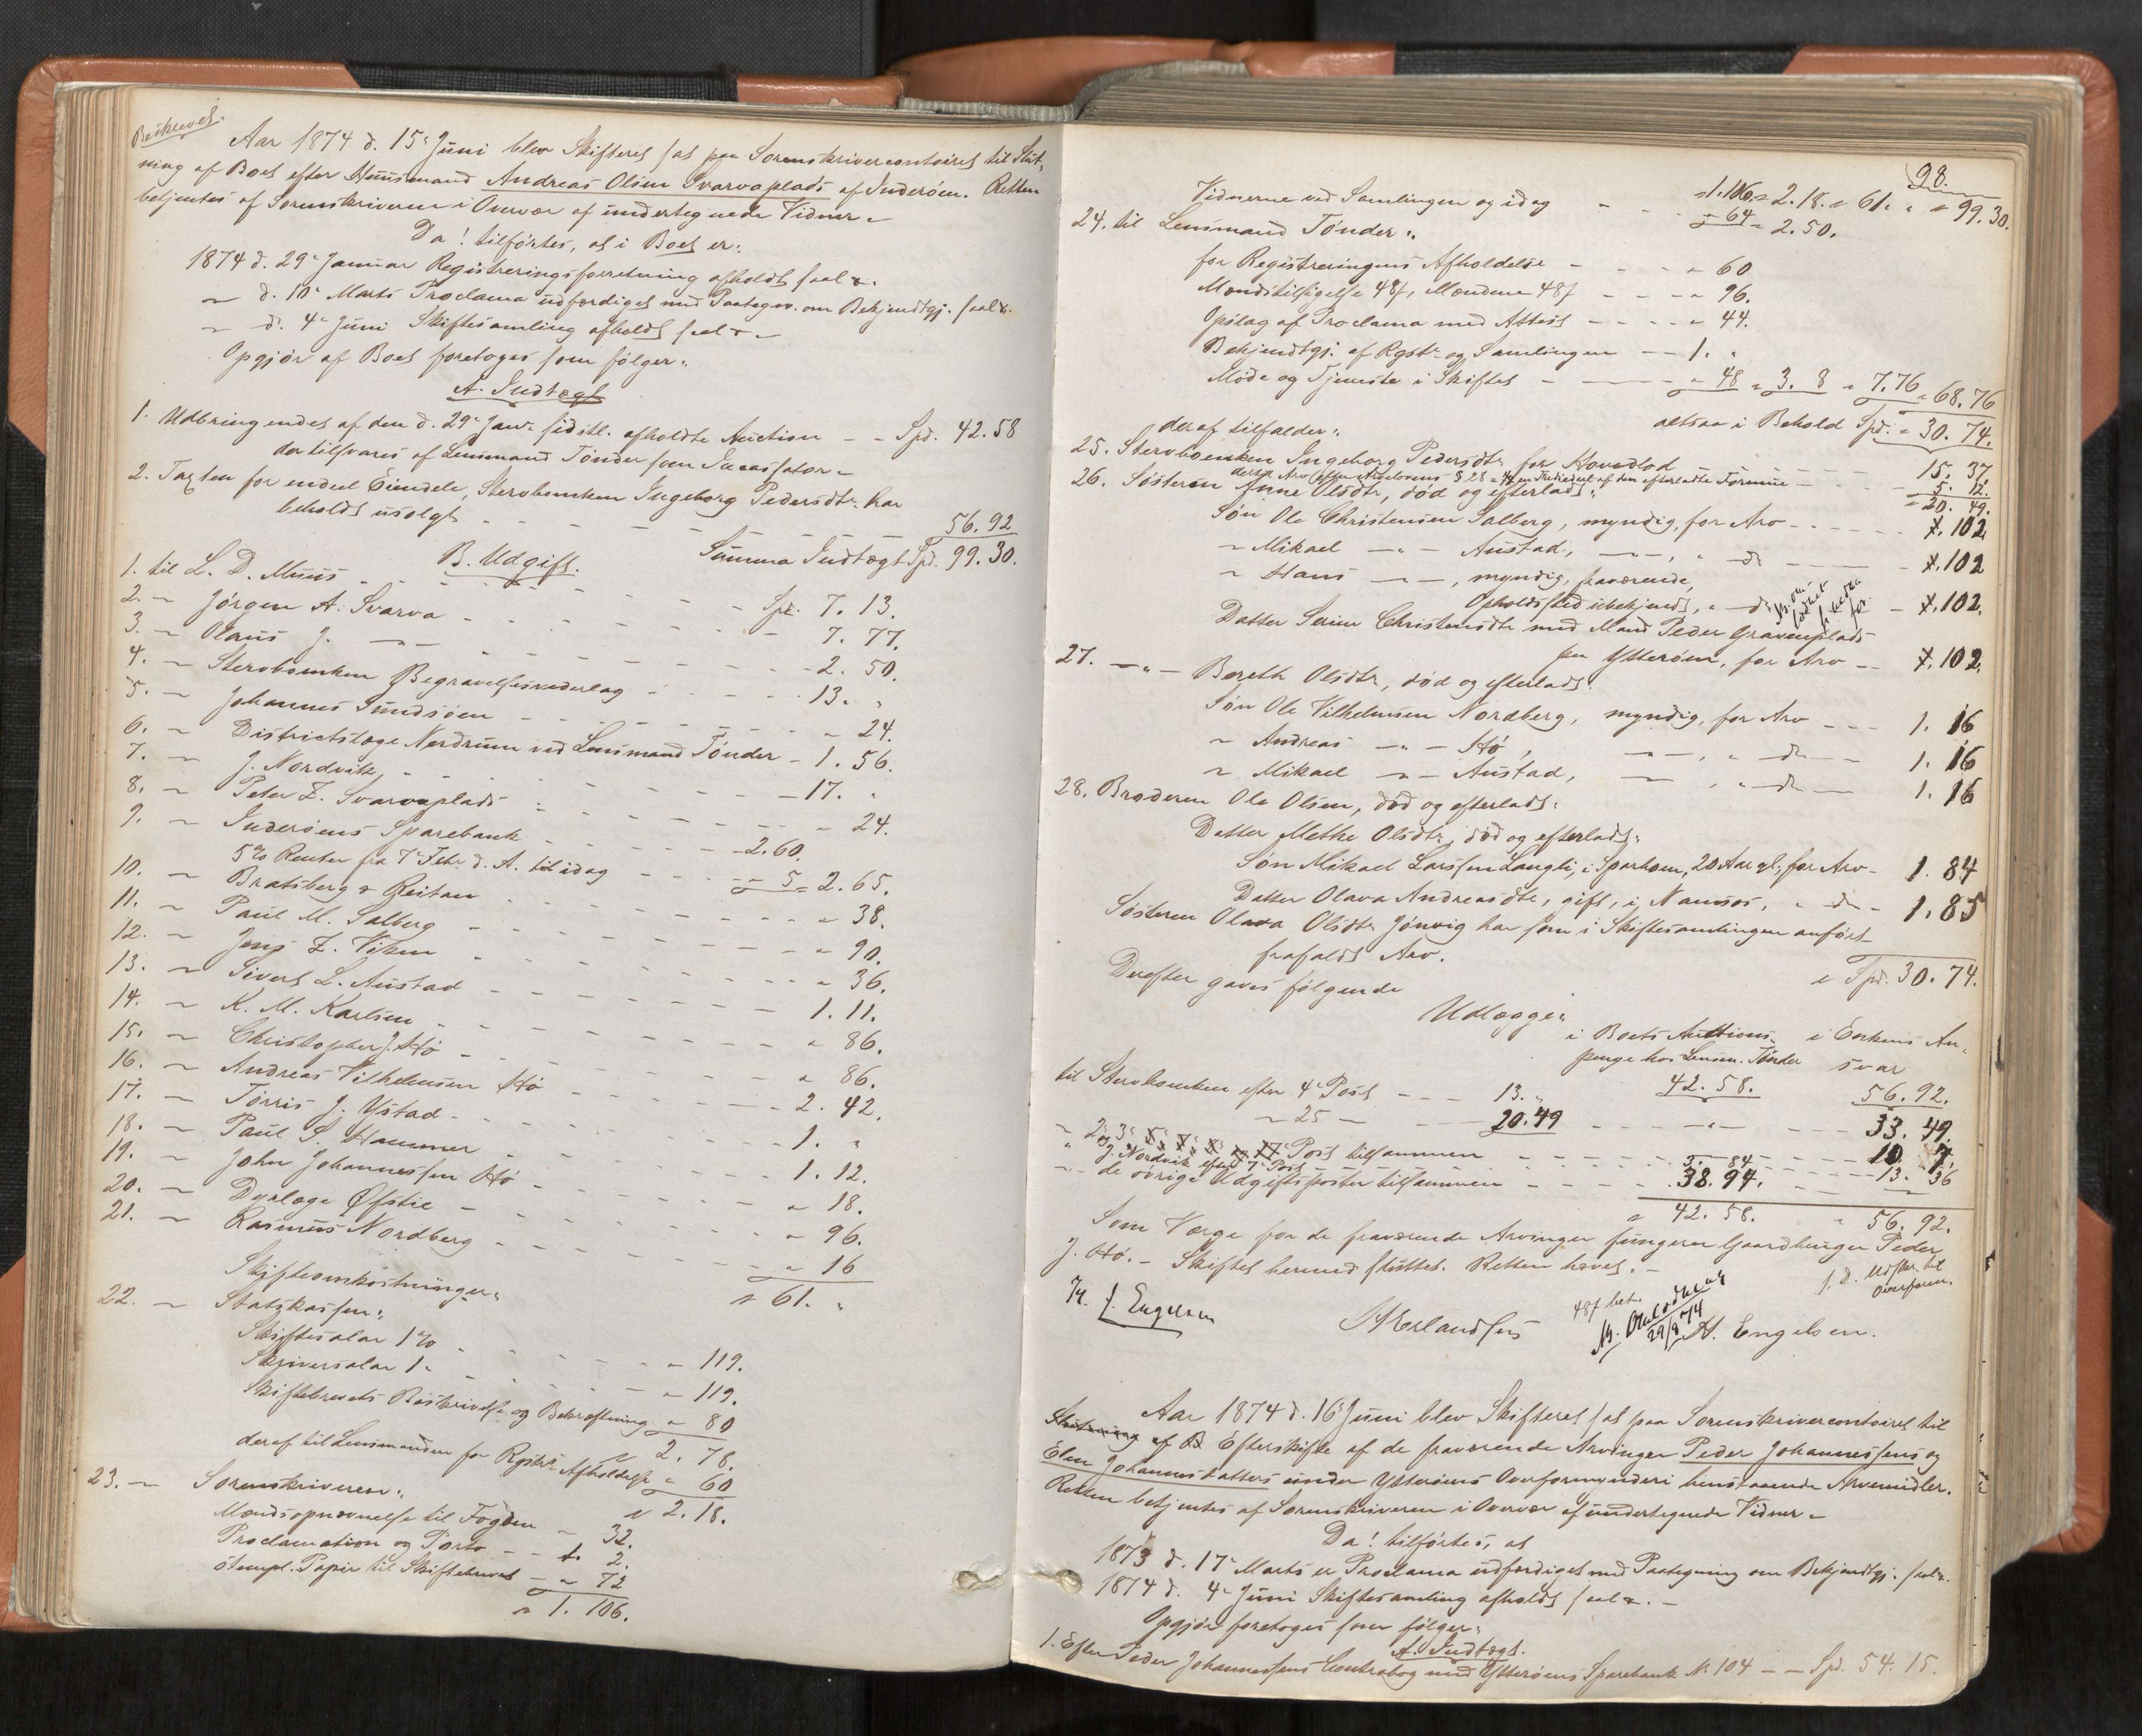 Beskrevet.
Aar 1874 d. 15e Juni blev Skifteret sat paa Sorenskrivercontoiret til Slut-
ning af Boet efter Huusmand Andreas Olsen Svarvaplads af Inderøen. Retten
betjentes af Sorenskriveren i Overvær af undertegnede Vidner.
Da! tilførtes, at i Boet er:
1874 d. 29e Januar Registreringsforretning afholdt sal.
" d. 10e Marts Proclama udfærdiget med Paategn. om Bekjendtgj. sal.
" d. 4e Juni Skiftesamling afholdt sal.
Opgjør af Boet foretoges som følger:
A. Indtægt
1. Udbringendet af den d. 29e Janr. sidstl. afholdte Auction - - Spd. 42. 58
der tilsvares af Lensmand Tønder som Incassator
2. Taxten for endeel Eiendele, Stervboenken Ingeborg Pedersdtr. har
beholdt usolgt - - - 56. 92
Summa Indtægt Spd. 99. 30.
B. Udgift.
1. til L. D. Muus - - - Spd. 7. 13.
2. " Jørgen A. Svarva - - - 7. 77.
3. " Olaus J. — " — - - - 2. 50.
4. " Stervboenken Begravelsesvederlag - - - 13. "
5. " Johannes Sundsøen - - - " 24.
6. " Districtslæge Nordrum ved Lensmand Tønder - 1. 56.
7. " J. Nordvik - - - 17. "
8. " Peter Z. Svarvaplads - - - " 24.
9. " Inderøens Sparebank - - - 2. 60.
5% Renter fra 7e Febr. d. A. til idag - - - " 5 = 2. 65.
10. " Bratsberg & Reitan - - - " 38.
11. " Paul M. Salberg - - - " 90.
12. " Jens Z. Viken - - - " 36.
13. " Sivert L. Austad - - - 1. 11.
14. " K. M. Karlsen - - - " 86.
15. " Christopher J. Hø - - - " 86.
16. " Andreas Vilhelmsen Hø - - - 2. 42.
17. " Tørris J. Ystad - - - 1. "
18. " Paul S. Hammer - - - 1. 12.
19. " John Johannessen Hø - - - " 18.
20. " Dyrlæge Øfstie - - - " 96.
21. " Rasmus Nordberg - - - " 16
" 61. "
Skifteomkostninger:
22. " Statskassen:
Skiftesalar 1% - - - " 119.
Skriversalar 1 " - - - " 119.
Skiftebrevets Beskrivelse og Bekræftning " 80
" 2. 78.
deraf til Lensmanden for Registr. Afholdelse " 60
" 2. 18.
23. " Sorenskriveren:
Mændsopnævnelse til Fogden - 32.
Proclamation og Porto - - 1. 2.
stempl. Papir til Skiftebrevet - " 72
" 1. 106.
98.
" 1. 106. = 2. 18. " 61. " " 99. 30.
Vidnerne ved Samlingen og idag - - - " 64 = 2. 50.
24. til Lensmand Tønder:
for Registreringens Afholdelse - - - " 60
Mændstilsigelse 48f, Mændene 48f - - - " 96.
Opslag af Proclama med Attest - - - " 44.
Bekjendtgj. af Rgstr. og Samlingen - - 1. "
Møde og Tjeneste i Skiftet - - - " 48 = 3. 8 = 7. 76 = 68. 76
altsaa i Behold Spd. " 30. 74.
deraf tilfalder:
25. Stervboenken Ingeborg Pedersdtr. for Hovedlod - - - 15. 37.
desse Arv efter Arvelovens § 28 = 1/3 en Trediedel af den efterladte Formue - - - 5. 12.
" 20. 49.
26. Søsteren Anne Olsdtr, død og efterladt:
Søn Ole Christensen Salberg, myndig, for Arv - - - 102.
" Mikael — " — Austad, — " — , " do - - - 102
" Hans — " — , myndig, fraværende,
Opholdssted ubekjendt, " do - - - 102.
Datter Serine Christensdtr med Mand Peder Gravemplads
paa Ytterøen, for Arv - - 102.
27. — " — Bereth Olsdtr, død og efterladt:
Søn Ole Vilhelmsen Nordberg, myndig, for Arv - - - 1. 16
" Andreas — " — Hø, — " — , " do - - 1. 16
" Mikael — " — Austad, — " — , " do - - 1. 16
28. Broderen Ole Olsen, død og efterladt:
Datter Methe Olsdtr, død og efterladt:
Søn Mikael Larssen Langli, i Sparboen, 20 Aar gl., for Arv - 1. 84
Datter Olava Andreasdtr, gift, i Namsos, " do - 1. 85
Søsteren Olava Olsdtr Jønvig har som i Skiftesamlingen anført
frafaldt Arv.
" Spd. 30. 74.
Derefter gaves følgende
Udlægge:
i Boets Auctions- i Enkens An-
penge hos Lensm. Tønder svar
42. 58. 56. 92.
til Stervboenken efter 4e Post - - - 13. "
" 25 — - - 20. 49 - - — " — - - - 33. 49.
" 2 og 3e Post tilsammen - - - 10. 7.
" J. Nordvik efter 7e Post - - - 3. 84 - - - 13. 36
" de øvrige Udgiftsposter tilsammen - - - 38. 94.
" 42. 58. " 56. 92.
Som Værge for de fraværende Arvinger fungerer Gaardbruger Peder
J. Hø. - Skiftet hermed sluttet. Retten hævet. -
J. Engelsen
A. Engelsen.
48f bet.
29/8 74
Aar 1874 d. 16e Juni blev Skifteret sat paa Sorenskrivercontoiret til
Slutning af B Efterskifte af de fraværende Arvinger Peder Johannessens og
Elen Johannesdatters under Ytterøens Overformynderi henstaaende Arvemidler.
Retten betjentes af Sorenskriveren i Overvær af undertegnede Vidner
Da! tilførtes, at
1873 d. 17e Marts er Proclama udfærdiget med Paategning om Bekjendtgj. sal.
1874 d. 4e Juni Skiftesamling afholdt sal. -
Opgjør foretoges som følger:
A. Indtægt.
1. Efter Peder Johannessens Contrabog med Ytterøens Sparebank No 104 - - Spd. 54. 15.